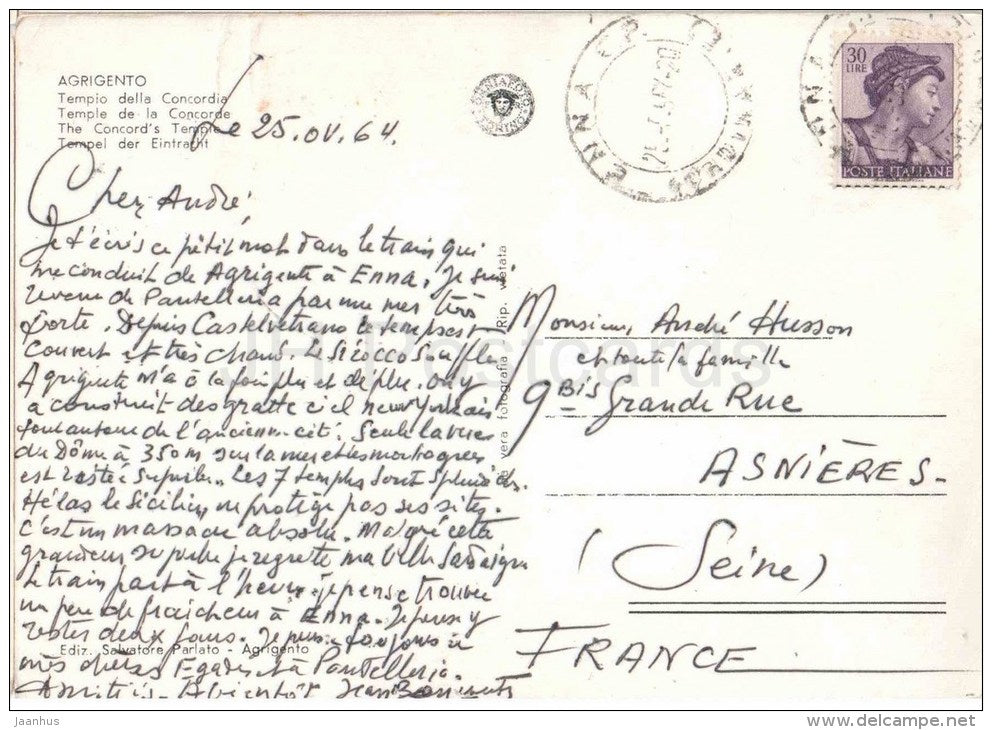 AGRIGENTO
Tempio della Concordia
Temple de la Concorde
The Concord's Temple
Tempel der Eintracht
Le 25.04.64.
Cher André,
Je t'écris ce petit mot dans le train qui
me conduit de Agrigente à Enna. Je suis
revenu de Pantelleria par une mer très
forte. Depuis Castelvetrano le temps est
couvert et très chaud. Le Sirocco souffle.
Agrigente m'a à la fois plu et déplu. On y
a construit des gratte ciel new yorkais
tout autour de l'ancienne cité. Seule la vue
du Dôme à 350m sur la mer et les montagnes
est restée superbe. Les 7 temples sont splendides.
Hélas le Sicilien ne protège pas ses sites.
C'est un massacre absolu. Malgré cette
grandeur superbe je regrette ma belle Sardaigne
Le train part à l'heure. je pense trouver
un peu de fraicheur à Enna. Je pense y
rester deux jours. Je pense toujours à
mes chères Egades et à Pantelleria.
Amitiés. A bientôt Jean
Ediz. Salvatore Parlato - Agrigento
vera fotografia Rip. vietata
ENNA
30
LIRE
POSTE ITALIANE
Monsieur André Husson
et toute la famille
9bis Grande Rue
ASNIÈRES.
(Seine)
FRANCE
JH Postcards
jaanhus
www.delcampe.net